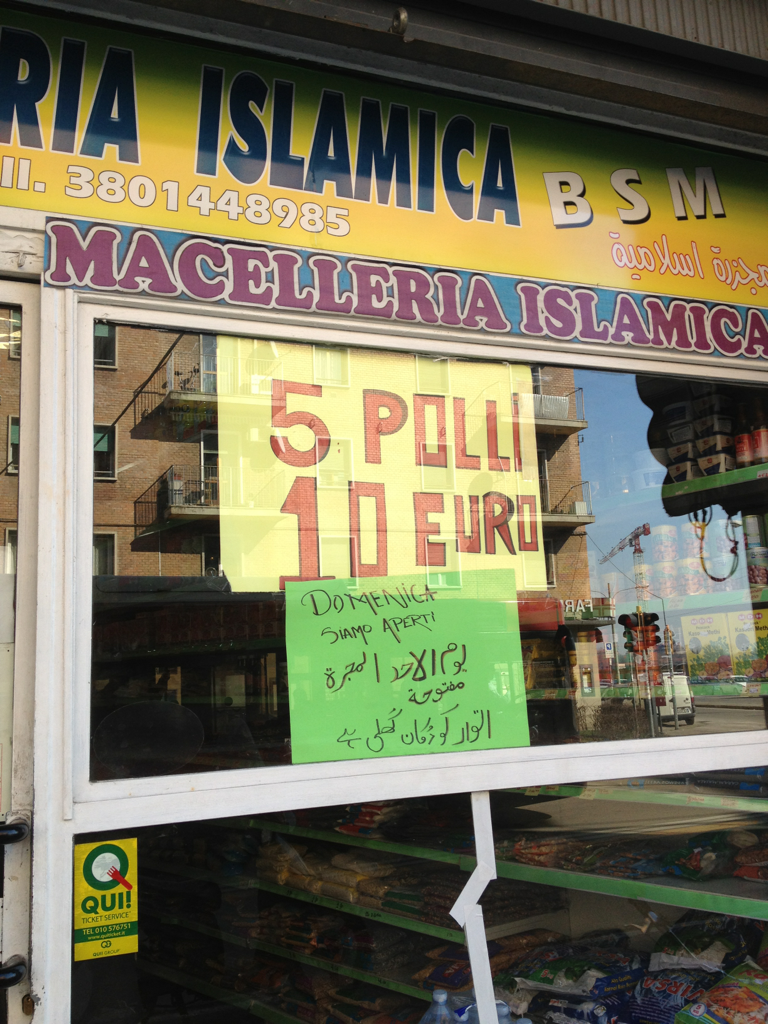 RIA ISLAMICA BSM
ll. 3801448985
مجزرة اسلامية
MACELLERIA ISLAMICA
5 POLLI
10 EURO
DOMENICA
SIAMO APERTI
يوم الاحد المجزرة
مفتوحة
اتوار کو دُکان کُھلی ہے
QUI!
TICKET SERVICE
TEL 010 576751
www.quiticket.it
QUI GROUP